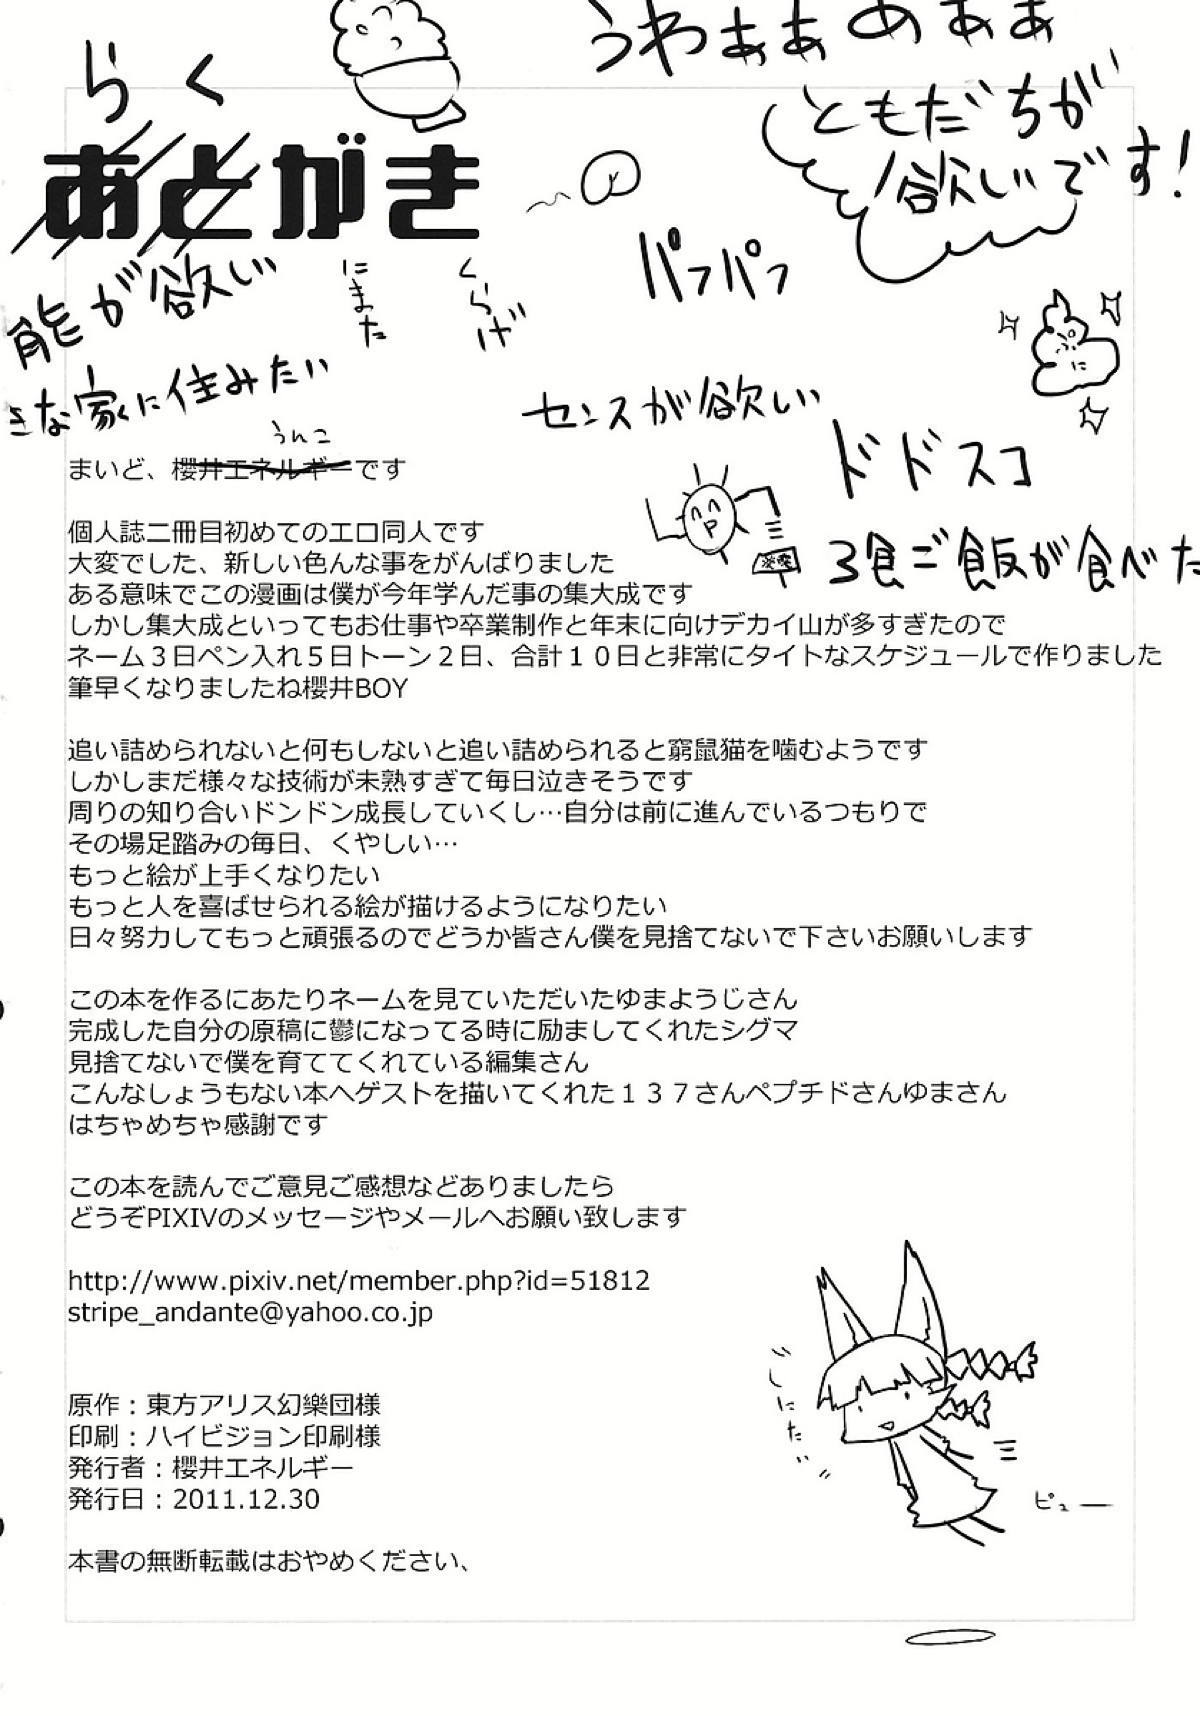 うわぁぁあぁぁ
らく
ともだちが
欲しいです!
あとがき
能が欲しい
にまた
くらげ
パフパフ
きな家に住みたい
センスが欲しい
ドドスコ
うんこ
まいど、櫻井エネルギーです
3食ご飯が食べた
個人誌二冊目初めてのエロ同人です
大変でした、新しい色んな事をがんばりました
ある意味でこの漫画は僕が今年学んだ事の集大成です
しかし集大成といってもお仕事や卒業制作と年末に向けデカイ山が多すぎたので
ネーム3日ペン入れ5日トーン2日、合計10日と非常にタイトなスケジュールで作りました
筆早くなりましたね櫻井BOY
追い詰められないと何もしないと追い詰められると窮鼠猫を噛むようです
しかしまだ様々な技術が未熟すぎて毎日泣きそうです
周りの知り合いドンドン成長していくし…自分は前に進んでいるつもりで
その場足踏みの毎日、くやしい…
もっと絵が上手くなりたい
もっと人を喜ばせられる絵が描けるようになりたい
日々努力してもっと頑張るのでどうか皆さん僕を見捨てないで下さいお願いします
この本を作るにあたりネームを見ていただいたゆまようじさん
完成した自分の原稿に鬱になってる時に励ましてくれたシグマ
見捨てないで僕を育ててくれている編集さん
こんなしょうもない本へゲストを描いてくれた137さんペプチドさんゆまさん
はちゃめちゃ感謝です
この本を読んでご意見ご感想などありましたら
どうぞPIXIVのメッセージやメールへお願い致します
http://www.pixiv.net/member.php?id=51812
stripe_andante@yahoo.co.jp
原作：東方アリス幻樂団様
印刷：ハイビジョン印刷様
発行者：櫻井エネルギー
発行日：2011.12.30
しにたい
ピューー
本書の無断転載はおやめください、